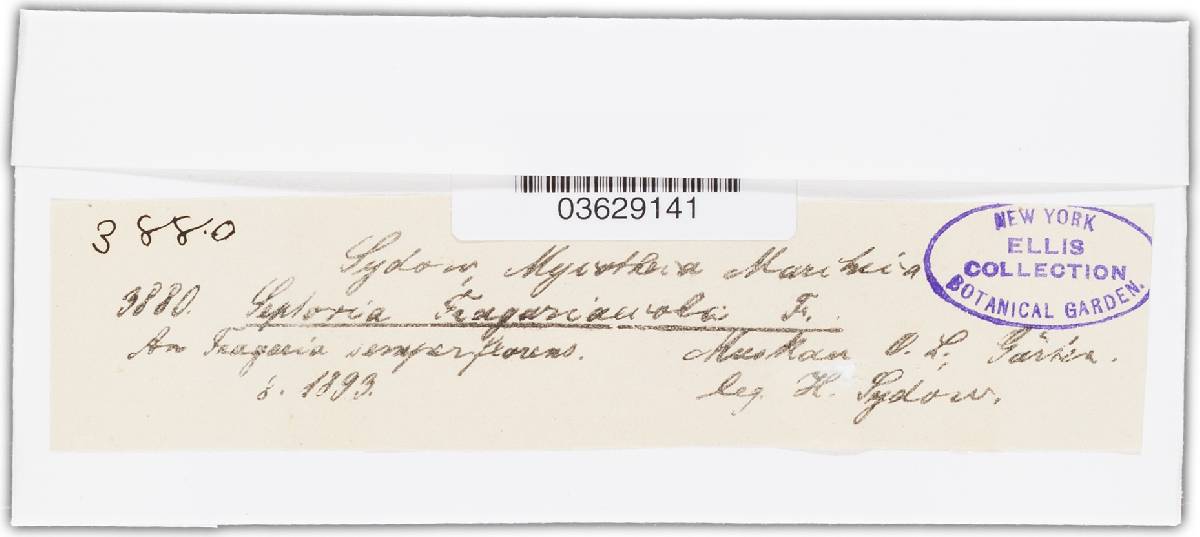 03629141
3880
NEW YORK
ELLIS
COLLECTION
BOTANICAL GARDEN.
Sydow, Mycotheca Marchica
3880. Septoria Fragariaecola F.
An Fragaria semperflorens. Muskau O. L., Gärten.
8. 1893. leg. H. Sydow.